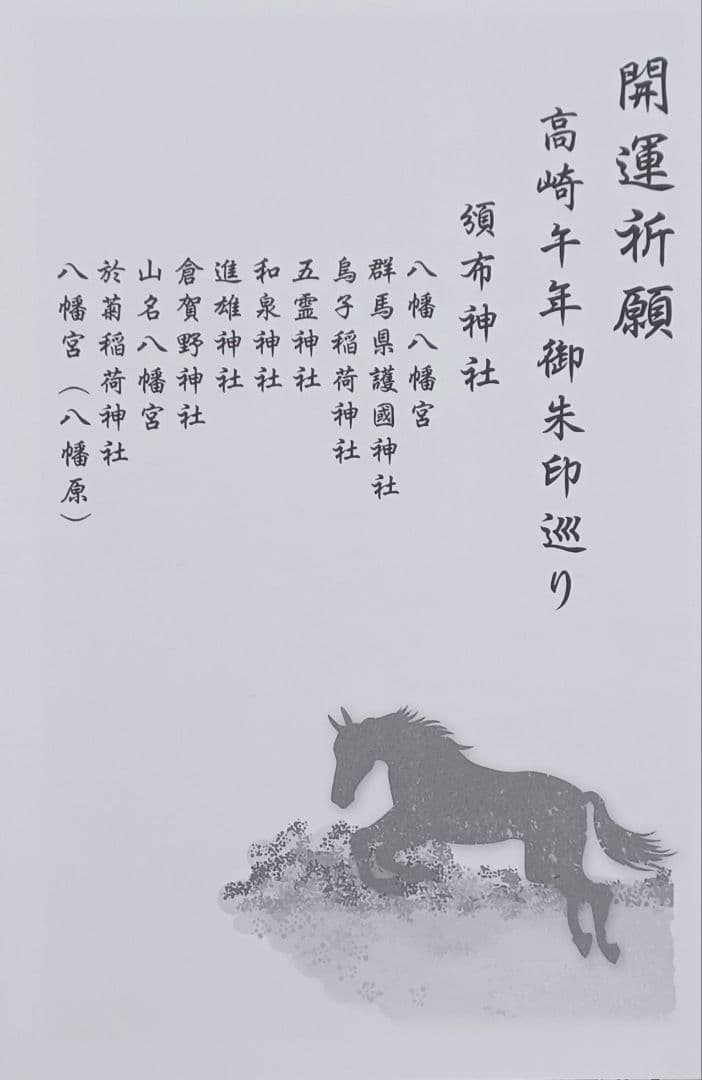 開運祈願
高崎午年御朱印巡り
頒布神社
八幡八幡宮
群馬県護國神社
烏子稲荷神社
五霊神社
和泉神社
進雄神社
倉賀野神社
山名八幡宮
於菊稲荷神社
八幡宮（八幡原）